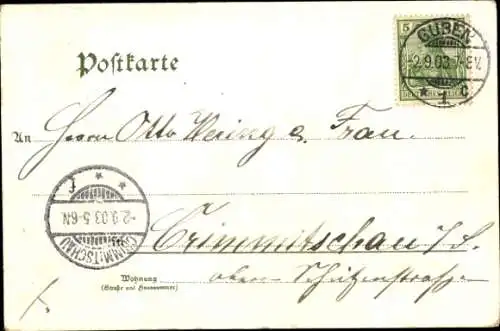 5
GUBEN
-2.9.03.7-8V.
* 1 c
Postkarte
An Herrn Otto & Frau.
CRIMMITSCHAU
-2.9.03.5-6N.
* * f
Crimmitschau i/S.
Wohnung obere Schützenstrasse
(Straße und Hausnummer)